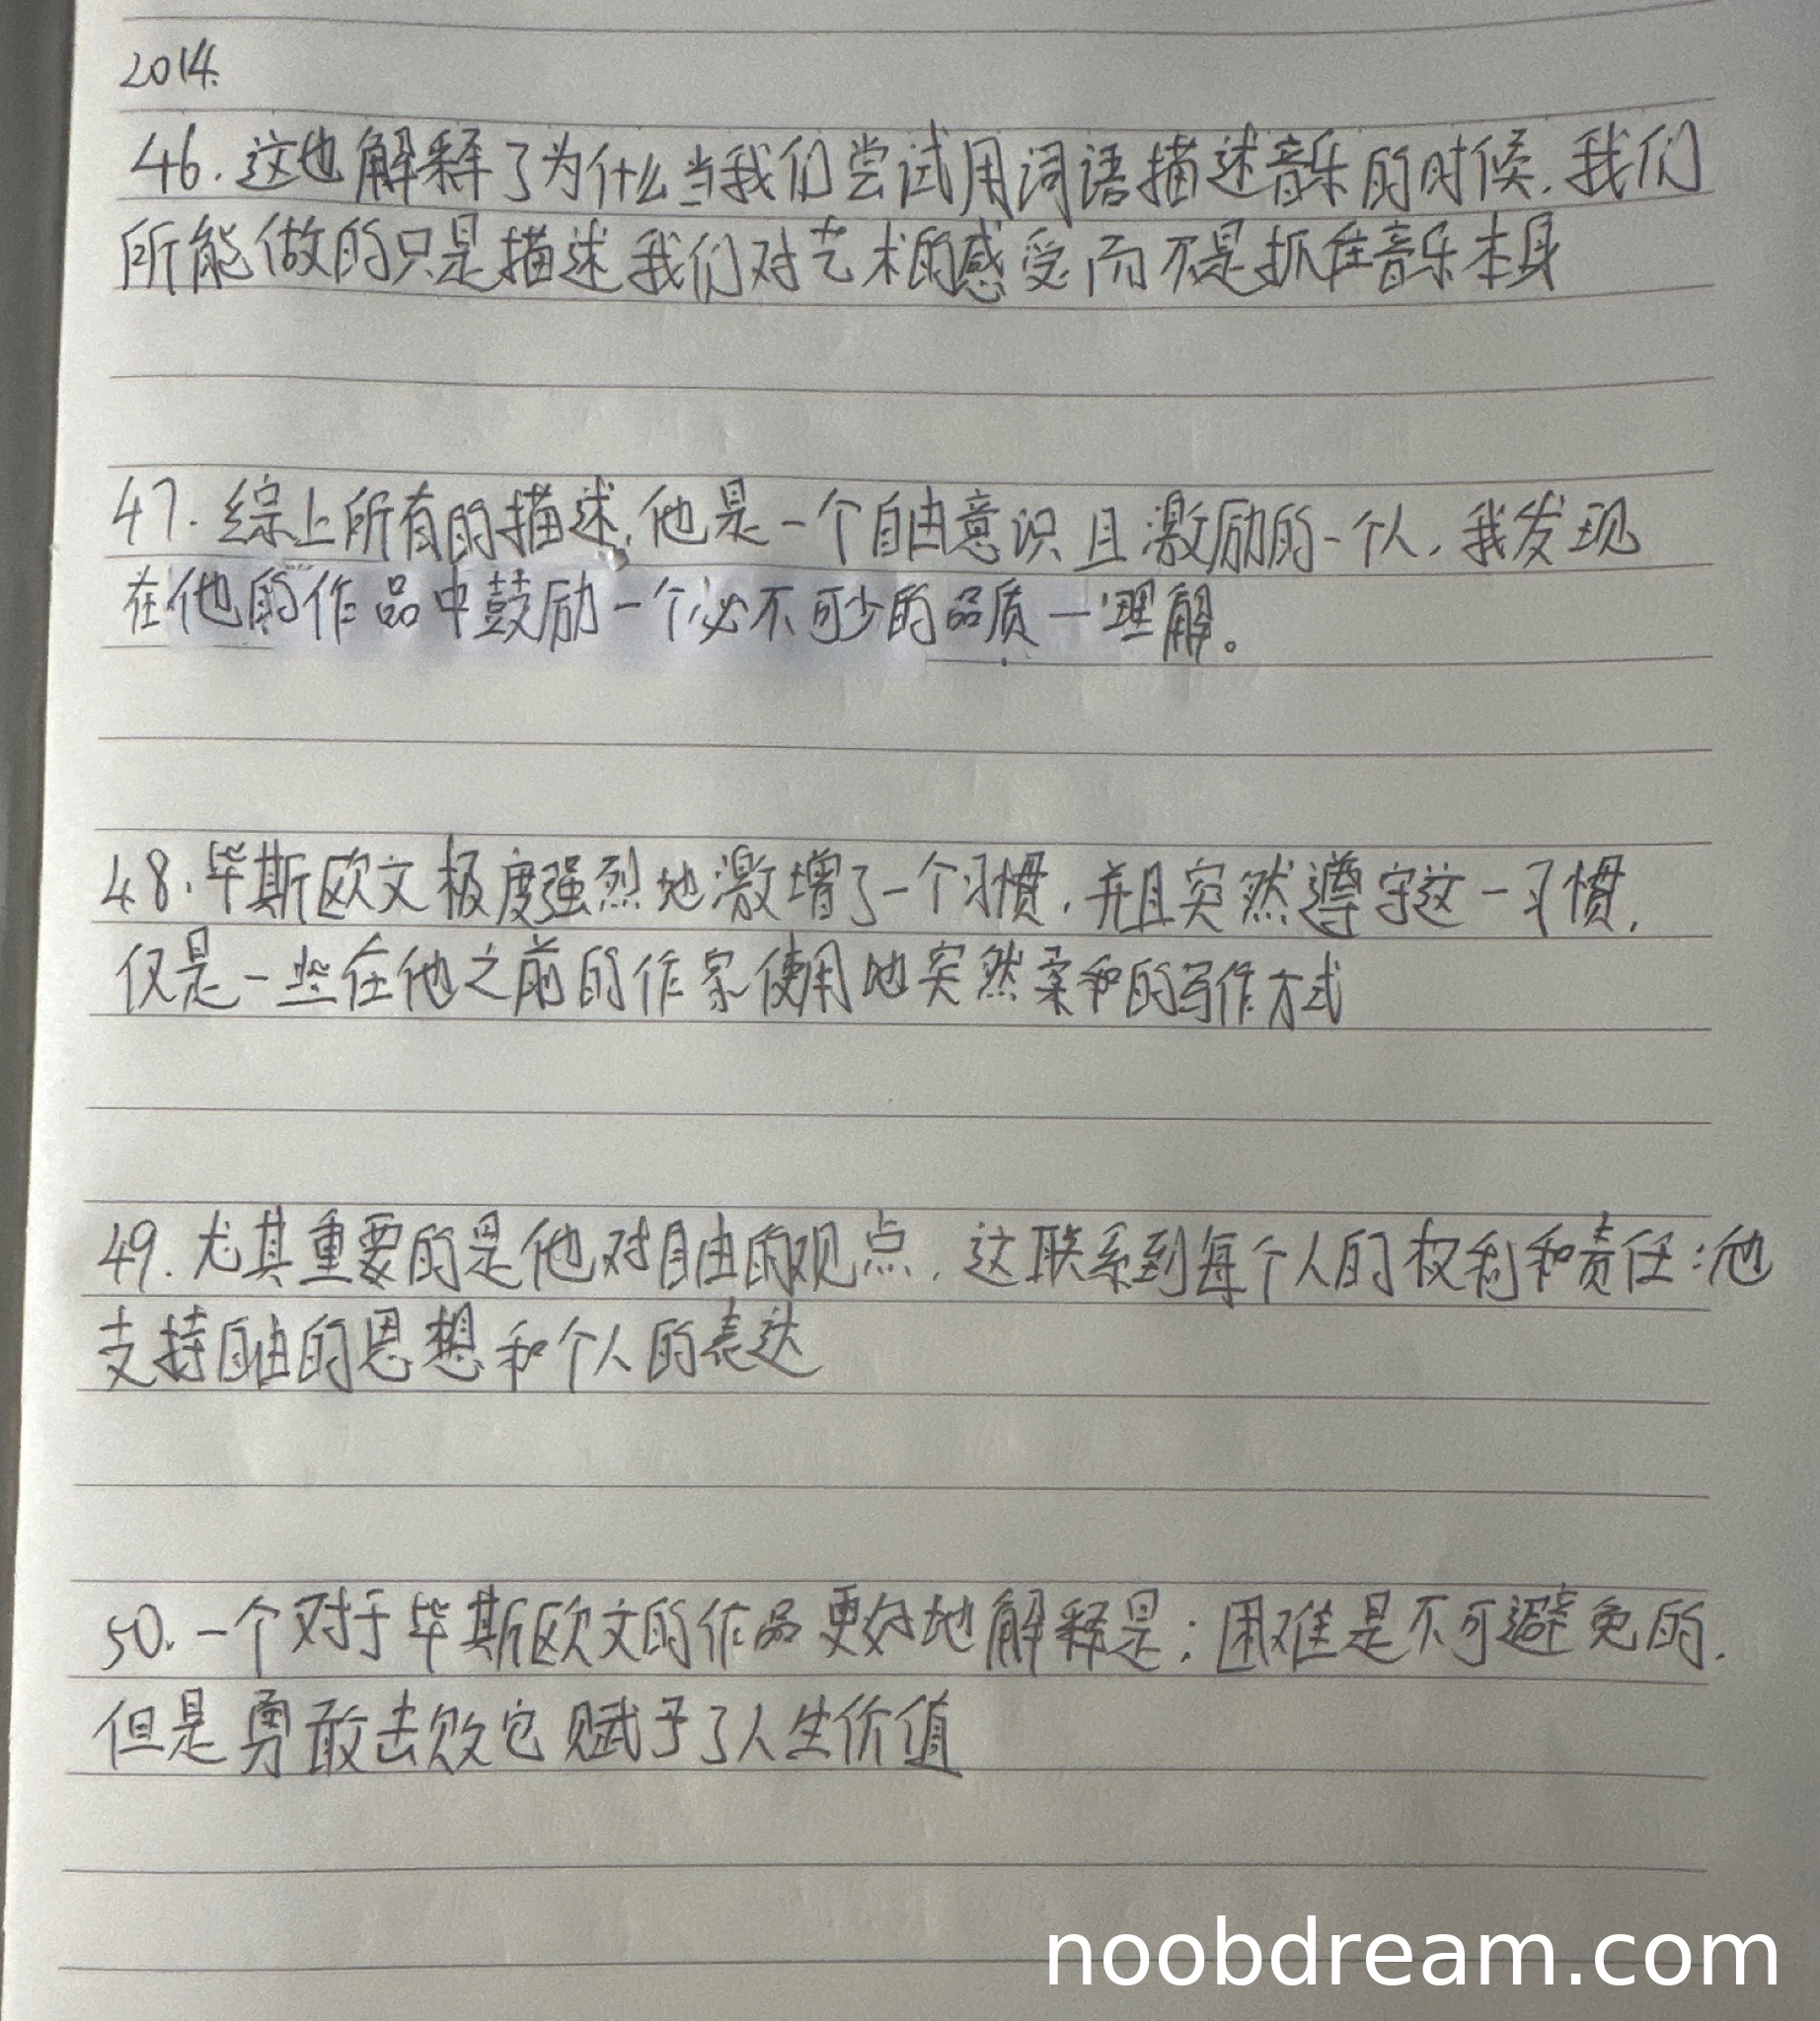 2014.
46.这也解释了为什么当我们尝试用词语描述音乐的时候,我们
所能做的只是描述我们对艺术的感受而不是抓住音乐本身
47.综上所有的描述,他是一个自由意识且激励的一个人,我发现
在他的作品中鼓励一个必不可少的品质一理解。
48.毕斯欧文极度强烈地激增了一个习惯,并且突然遵守这一习惯,
仅是一些在他之前的作家使用地突然柔和的写作方式
49.尤其重要的是他对自由的观点,这联系到每个人的权利和责任:他
支持自由的思想和个人的表达
50.一个对于毕斯欧文的作品更好地解释是:困难是不可避免的.
但是勇敢去败它赋予了人生价值
noobdream.com